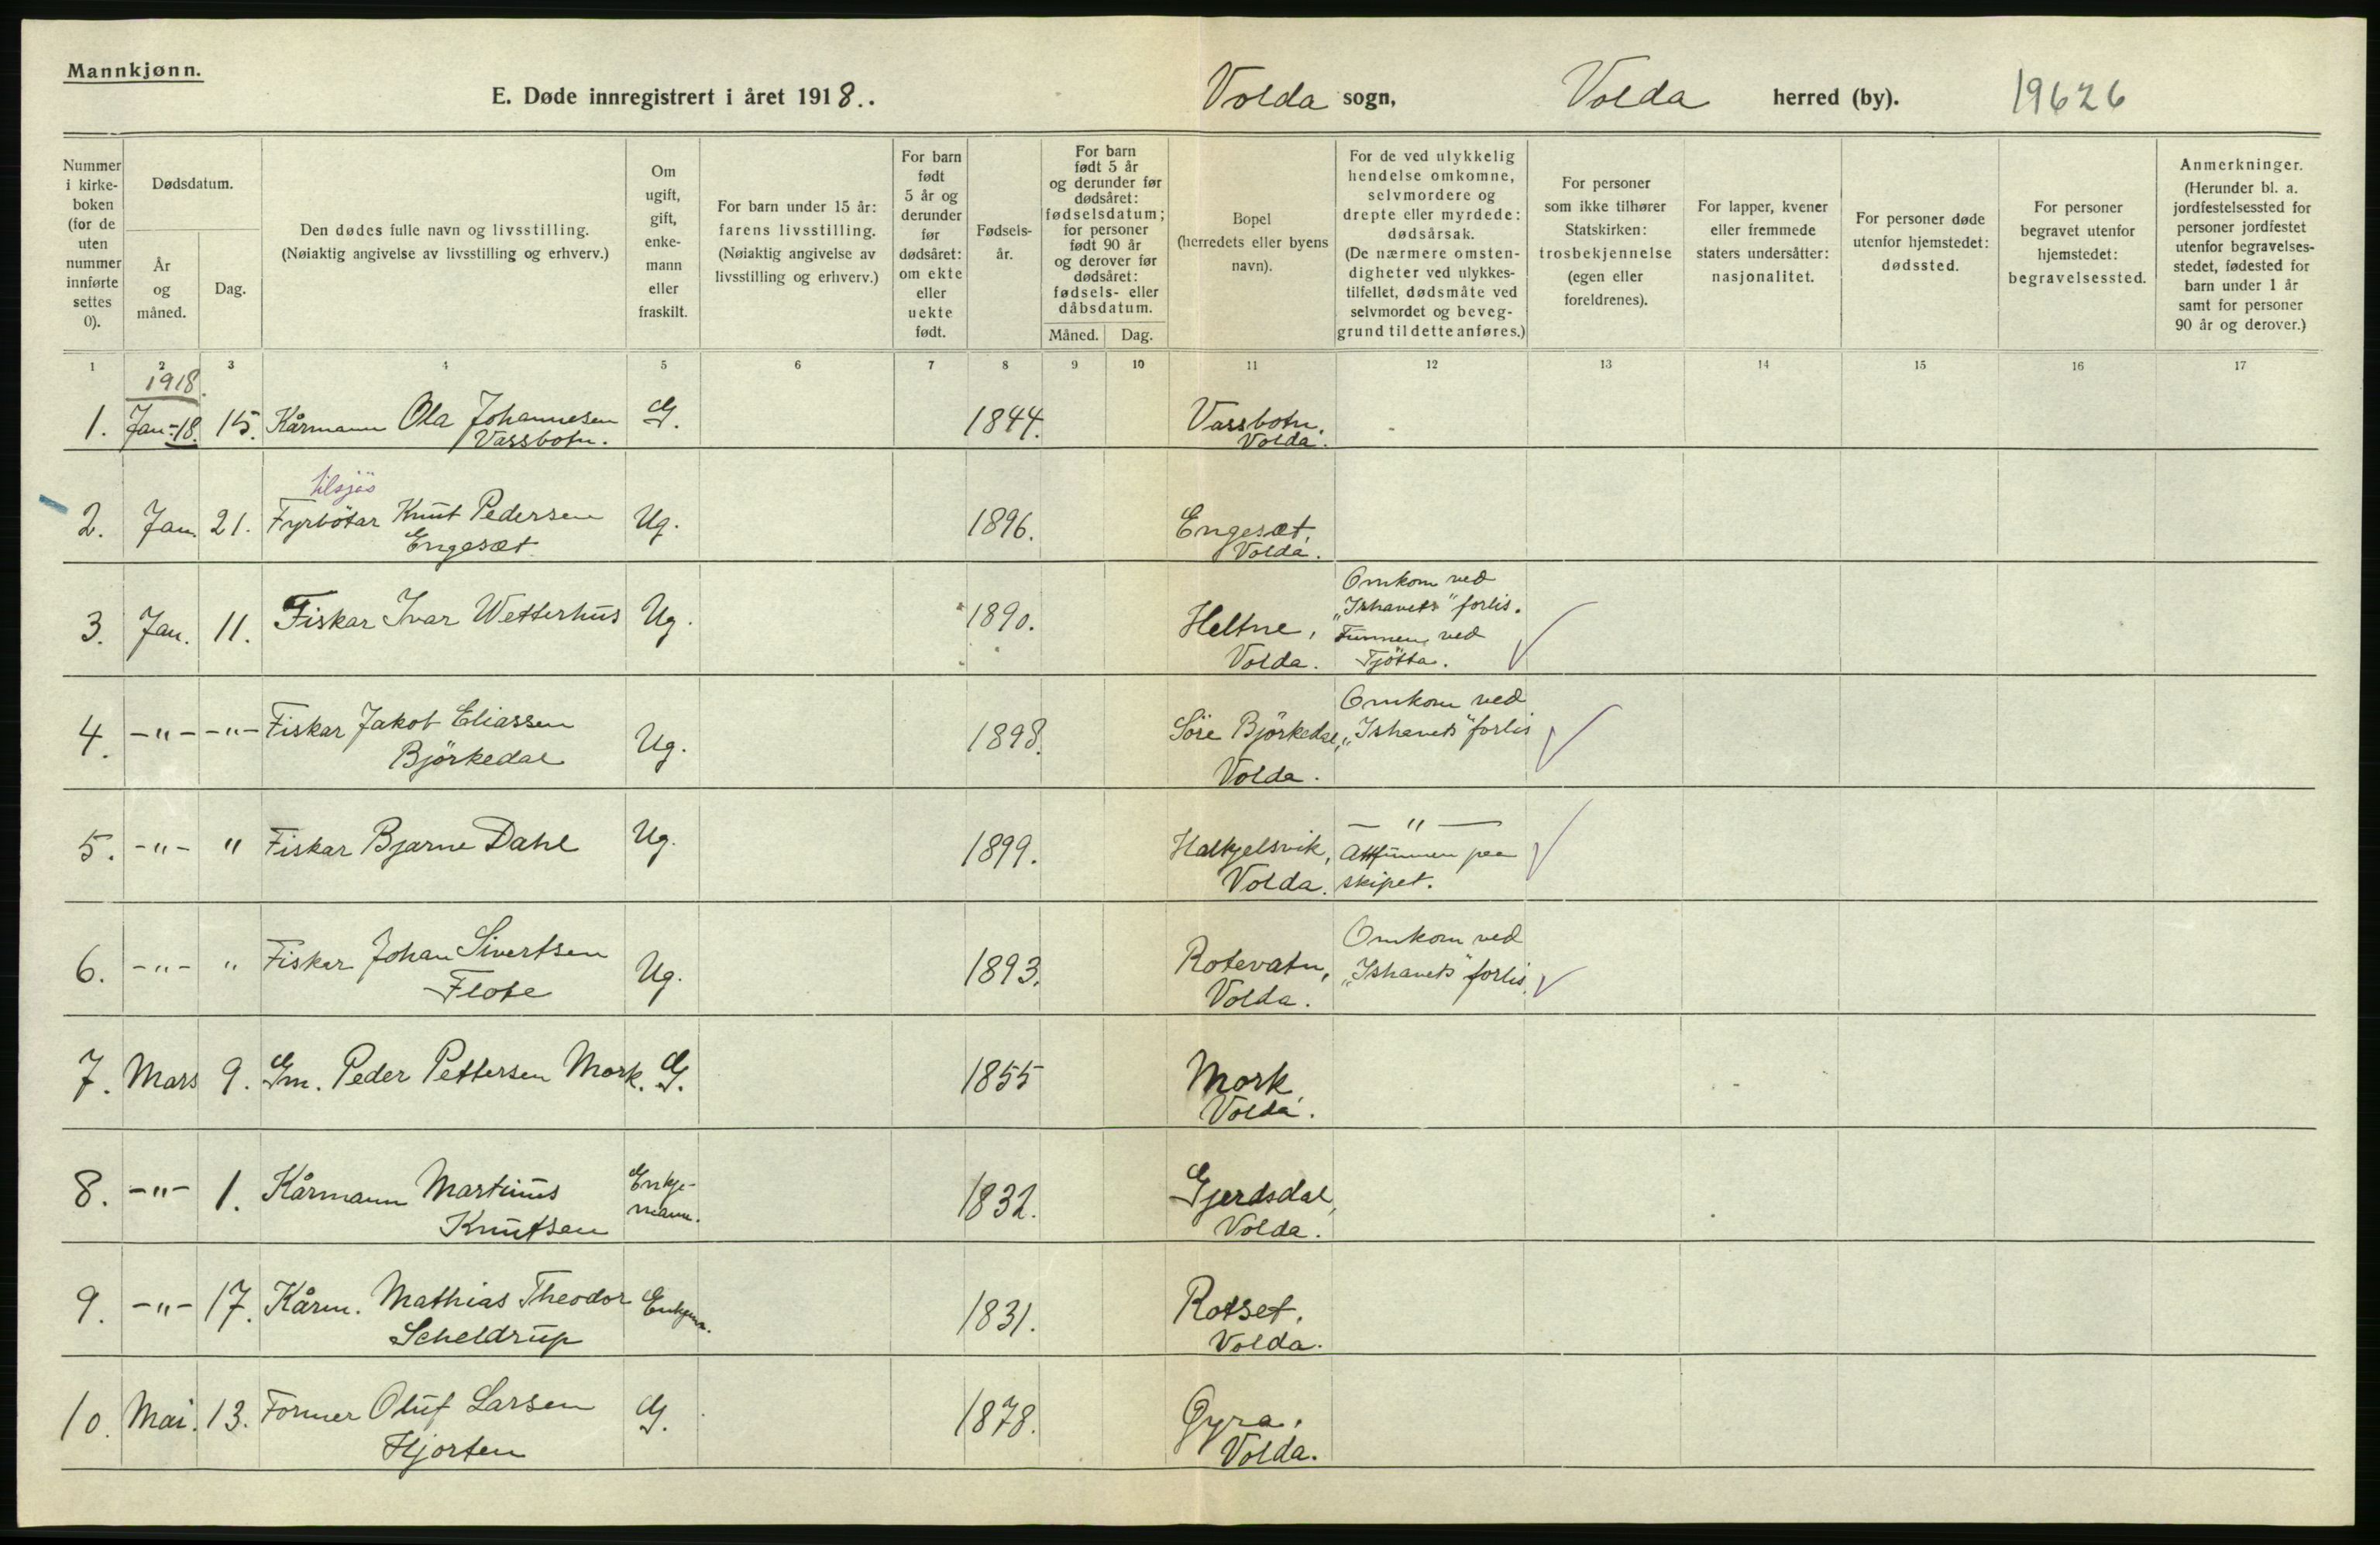 Mannkjønn.
E. Døde innregistrert i året 1918.. Volda sogn, Volda herred (by). 19626
Nummer
i kirke-
boken
(for de
uten
nummer
innførte
settes
0).
Dødsdatum.
År
og
måned.
Dag.
Den dødes fulle navn og livsstilling.
(Nøiaktig angivelse av livsstilling og erhverv.)
Om
ugift,
gift,
enke-
mann
eller
fraskilt.
For barn under 15 år:
farens livsstilling.
(Nøiaktig angivelse av
livsstilling og erhverv.)
For barn
født
5 år og
derunder
før
dødsåret:
om ekte
eller
uekte
født.
Fødsels-
år.
For barn
født 5 år
og derunder før
dødsåret:
fødselsdatum;
for personer
født 90 år
og derover før
dødsåret:
fødsels- eller
dåbsdatum.
Måned. Dag.
Bopel
(herredets eller byens
navn).
For de ved ulykkelig
hendelse omkomne,
selvmordere og
drepte eller myrdede:
dødsårsak.
(De nærmere omsten-
digheter ved ulykkes-
tilfellet, dødsmåte ved
selvmordet og beveg-
grund til dette anføres.)
For personer
som ikke tilhører
Statskirken:
trosbekjennelse
(egen eller
foreldrenes).
For lapper, kvener
eller fremmede
staters undersåtter:
nasjonalitet.
For personer døde
utenfor hjemstedet:
dødssted.
For personer
begravet utenfor
hjemstedet:
begravelsessted.
Anmerkninger.
(Herunder bl. a.
jordfestelsessted for
personer jordfestet
utenfor begravelses-
stedet, fødested for
barn under 1 år
samt for personer
90 år og derover.)
1 2 3 4 5 6 7 8 9 10 11 12 13 14 15 16 17
1918.
1. Jan.-18. 15. Kårmann Ola Johannesen G. 1844. Vassbotn,
Vassbotn. Volda.
tilsjøs
2. Jan. 21. Fyrbötar Knut Pedersen Ug. 1896. Engesæt,
Engesæt Volda.
Omkom ved
"Ishavets" forlis.
3. Jan. 11. Fiskar Ivar Wetterhus Ug. 1890. Heltne, Funnen ved
Volda. Tjötta.
Omkom ved
4. -"- -"- Fiskar Jakob Eliassen Ug. 1898. Söre Björkedal, "Ishavets" forlis
Björkedal Volda.
— " —
5. -"- " Fiskar Bjarne Dahl Ug. 1899. Halkjelsvik, Attfunnen paa
Volda. skipet.
Omkom ved
6. -"- " Fiskar Johan Sivertsen Ug. 1893. Rotevatn, "Ishavets" forlis.
Flote Volda.
7. Mars 9. Gm. Peder Pettersen Mork. G. 1855 Mork,
Volda.
8. -"- 1. Kårmann Martinus Enkje- 1832. Gjerdsdal,
Knutsen mann. Volda.
9. -"- 17. Kårm. Mathias Theodor Enkjem. 1831. Rotset,
Scheldrup Volda.
10. Mai. 13. Former Oluf Larsen G. 1878. Öyra,
Hjorten Volda.